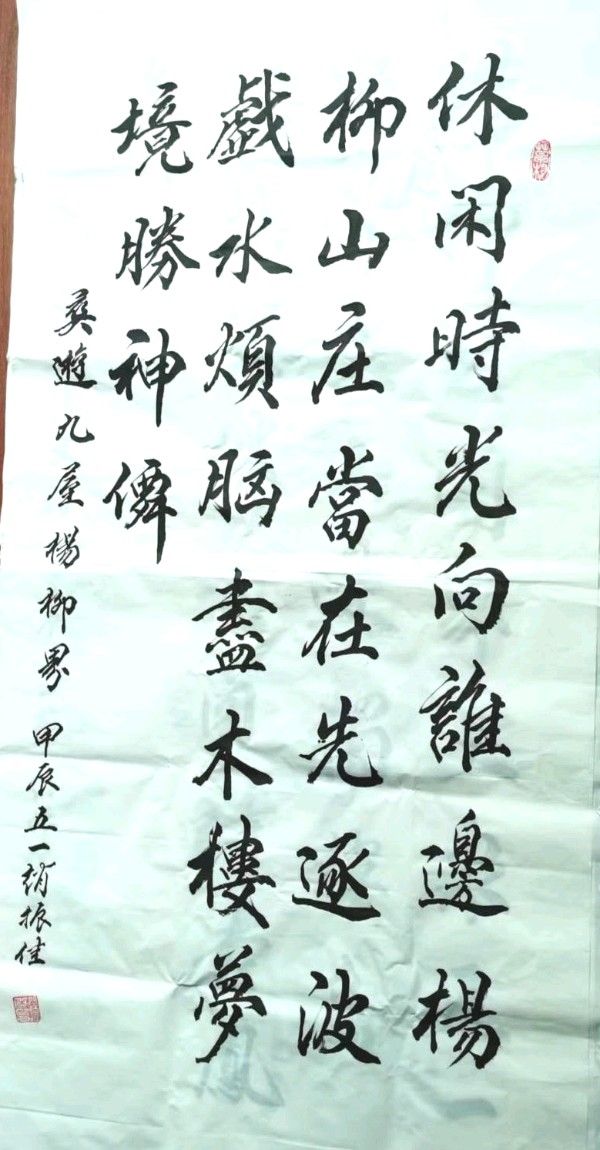 休闲時光向誰邊楊
柳山庄當在先逐波
戲水煩脑盡木樓夢
境勝神僊
遊九屋楊柳
甲辰五一趙振佳